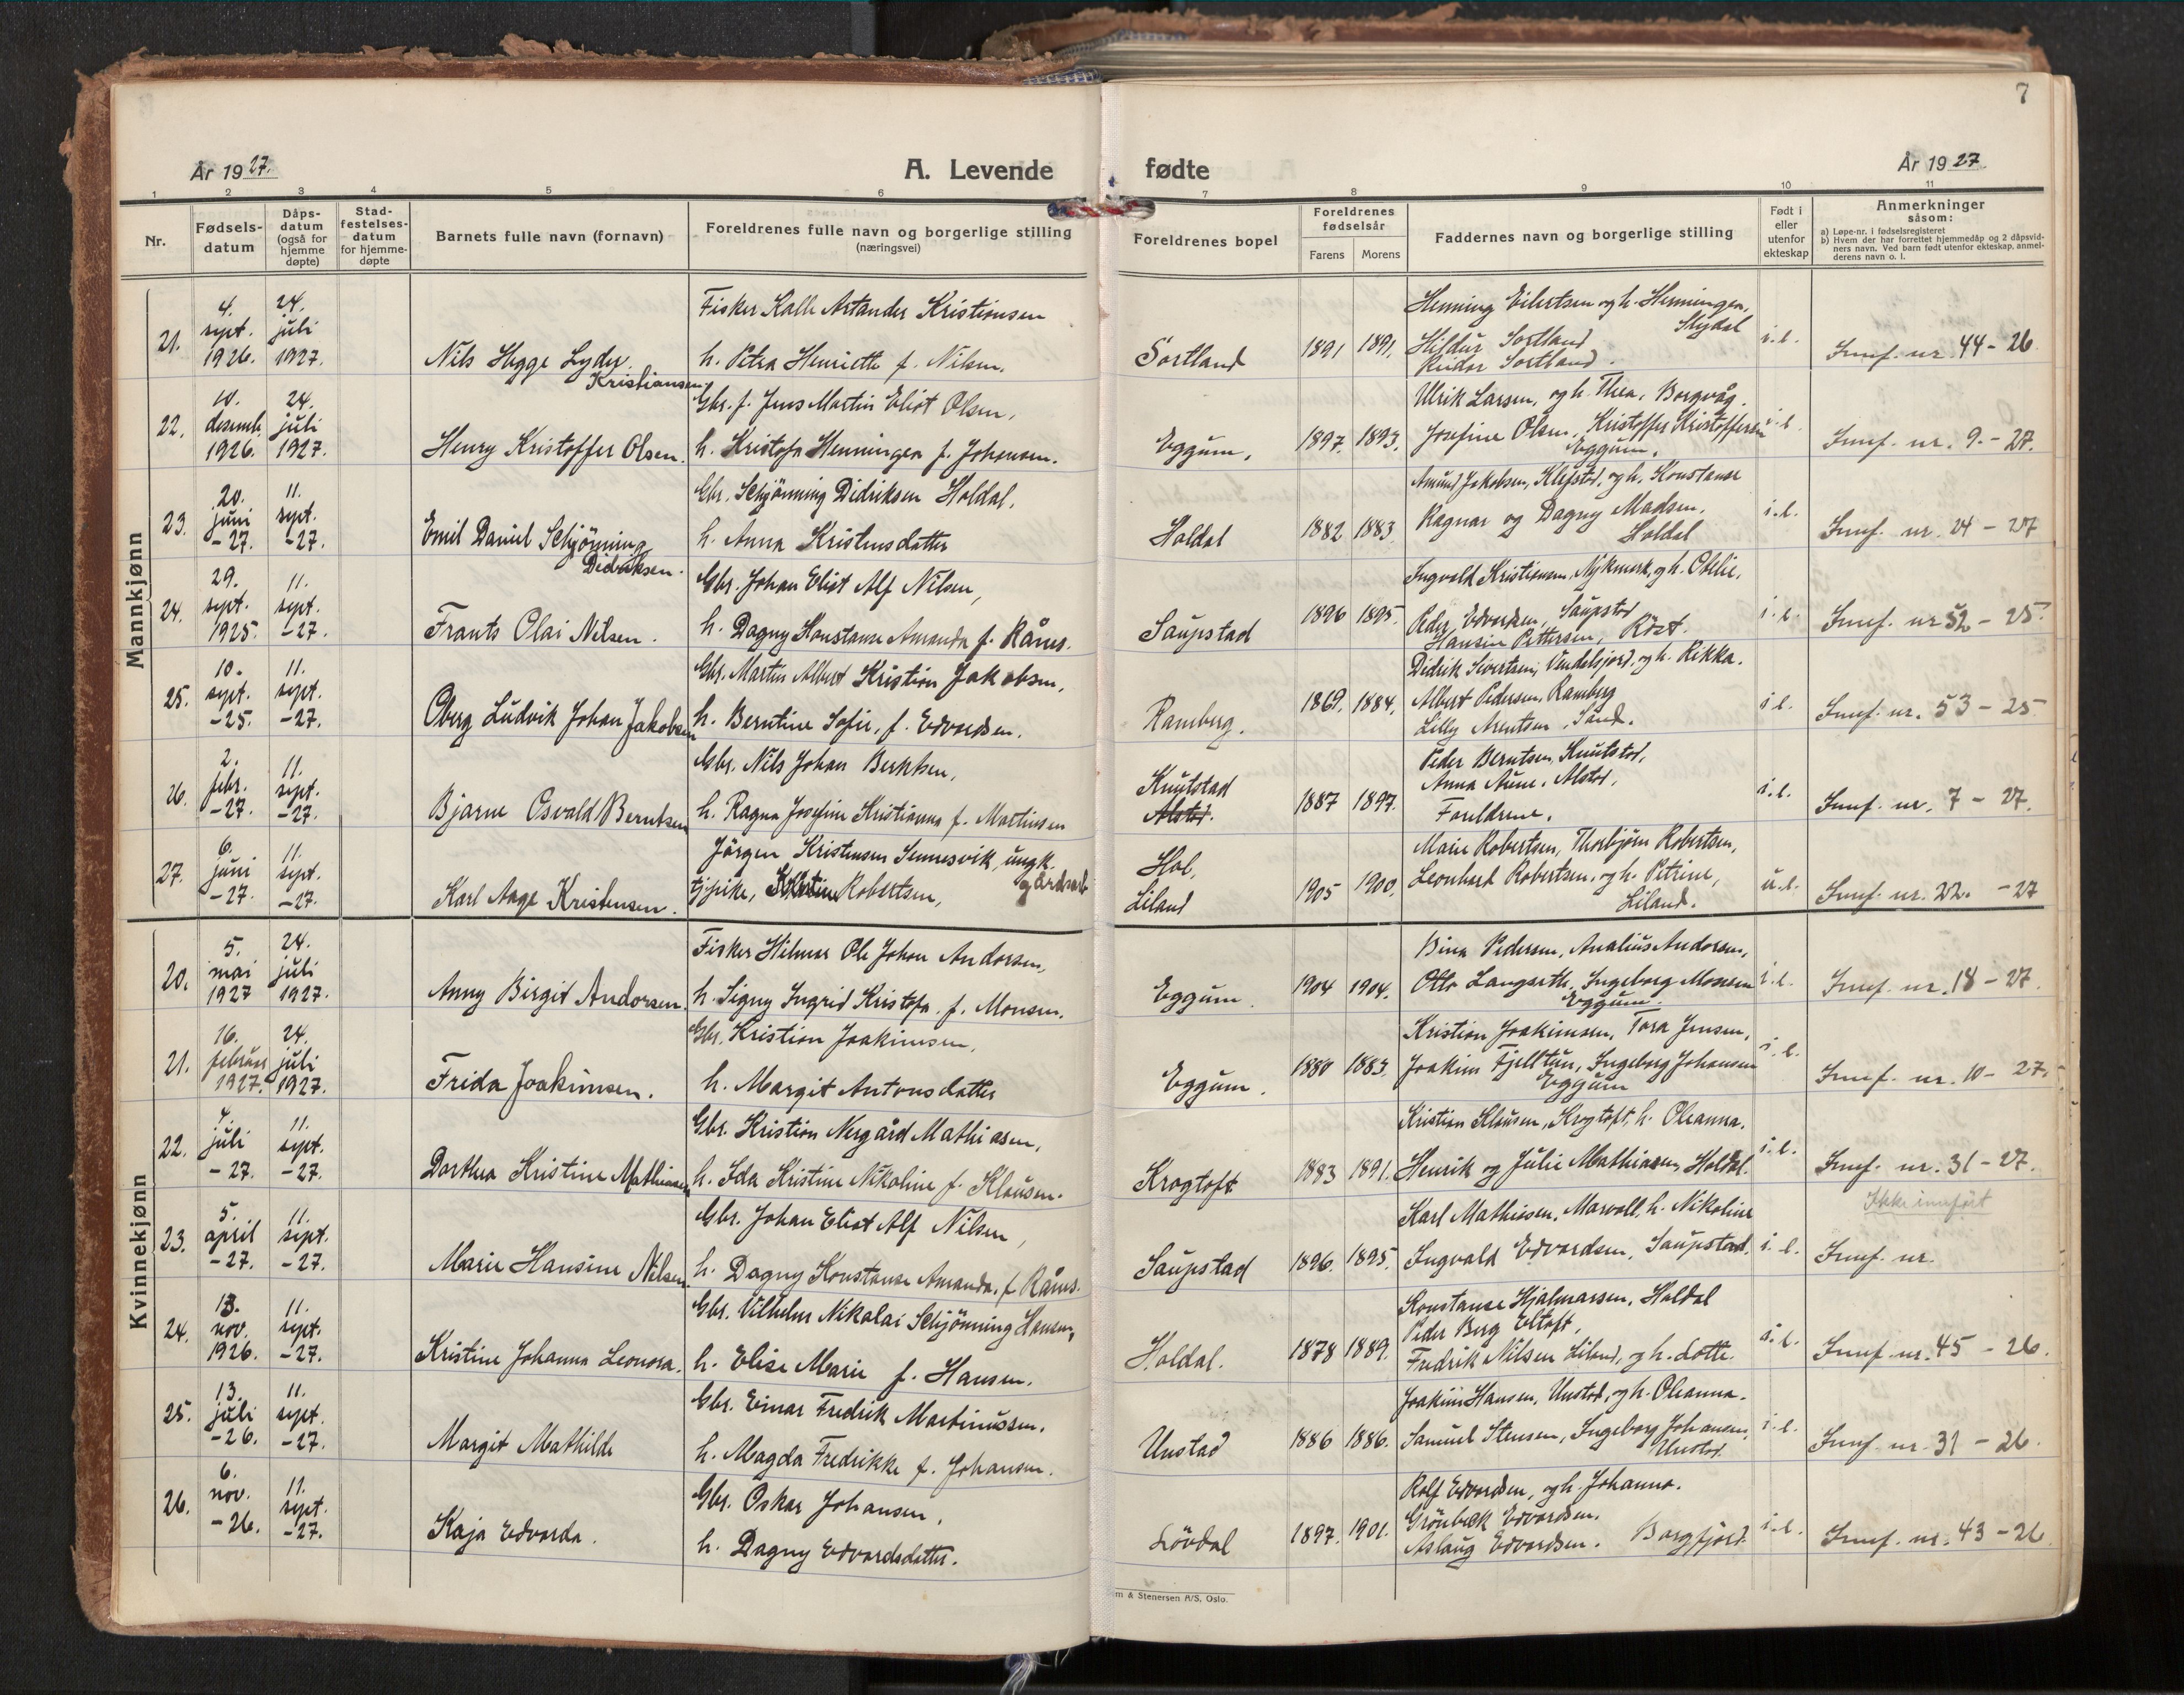 7
År 1927.
A. Levende
fødte
År 1927
1 2 3 4 5 6 7 8 9 10 11
Nr.
Fødsels-
datum
Dåps-
datum
(også for
hjemme
døpte)
Stad-
festelses-
datum
for hjemme-
døpte
Barnets fulle navn (fornavn)
Foreldrenes fulle navn og borgerlige stilling
(næringsvei)
Foreldrenes bopel
Foreldrenes
fødselsår
Farens Morens
Faddernes navn og borgerlige stilling
Født i
eller
utenfor
ekteskap
Anmerkninger
såsom:
a) Løpe-nr. i fødselsregisteret
b) Hvem der har forrettet hjemmedåp og 2 dåpsvid-
ners navn. Ved barn født utenfor ekteskap, anmel-
derens navn o. l.
Mannkjønn
21.
4.
sept.
1926.
24.
juli
1927.
Nils Hegge Lyder
Kristiansen
Fisker Kalle Artander Kristiansen
h. Petra Henriette f. Nilsen.
Sortland
1891 1891.
Henning Eilertsen og h. Henningea,
Slydal
Hildur Sortland
Reidar Sortland.
i.e.
Innf. nr. 44 - 26.
22.
10.
desemb.
1926.
24.
juli
1927.
Henry Kristoffer Olsen.
Gbr. f. Jens Martin Eliot Olsen,
h. Kristofa Henningea f. Johansen.
Eggum.
1897. 1893.
Ulrik Larsen, og h. Thea, Borgvåg.
Josefine Olsen, Kristoffer Kristoffersen
Eggum.
i.e.
Innf. nr. 9. - 27.
23.
20.
juni
-27.
11.
sept.
-27.
Emil Daniel Schjönning
Didriksen.
Gbr. Schjönning Didriksen Holdal,
h. Anna Kristensdatter
Holdal
1882 1883.
Amund Jakobsen, Klefstad, og h. Konstanse
Ragnar og Dagny Madsen.
Holdal
i.e.
Innf. nr. 24 - 27
24.
29.
sept.
1925.
11.
sept.
-27.
Frants Olai Nilsen.
Gbr. Johan Eliot Alf Nilsen,
h. Dagny Konstanse Amanda f. Rånes.
Saupstad
1896 1895.
Ingvald Kristiansen, Nykmark, og h. Otelie.
Peder Edvardsen, Saupstad
Hansine Pettersen, Röst.
i.e.
Innf. nr 52 - 25.
25.
10.
sept.
-25.
11.
sept.
-27.
Oberg Ludvik Johan Jakobsen
Gbr. Martin Albert Kristian Jakobsen,
h. Berntine Sofie, f. Edvardsen.
Ramberg.
1869. 1884,
Didrik Sivertsen, Vendelsjord, og h. Rikka.
Albert Pedersen, Ramberg
Lilly Arentsen, Sand.
i.e.
Innf. nr. 53 - 25
26.
2.
febr.
-27.
11.
sept.
-27.
Bjarne Osvald Berntsen
Gbr. Nils Johan Berntsen,
h. Ragna Josefine Kristianna f. Martinsen
Knutstad
Alstad.
1887 1897.
Peder Berntsen, Knutstad,
Anna Aune, Alstad,
Foreldrene.
i.e.
Innf. nr. 7 - 27.
27.
6.
juni
-27.
11.
sept.
-27.
Karl Aage Kristensen.
Jörgen Kristensen Sennesvik, ungk.
gårdsarb
tjpike, Kristine Robertsen,
Hol,
Liland
1905 1900.
Marie Robertsen, Thorbjørn Robertsen,
Leonhard Robertsen, og h. Petrine,
Liland.
u.e.
Innf. nr. 22. - 27
Kvinnekjønn
20.
5.
mai
1927
24.
juli
1927.
Anny Birgit Andorsen.
Fisker Hilmar Ole Johan Andorsen,
h. Signy Ingrid Kristofa. f. Monsen.
Eggum.
1904 1904.
Bina Pedersen, Analius Andorsen,
Otto Langseth, Ingeborg Monsen
Eggum.
i.e.
Innf. nr. 18 - 27.
21.
16.
februar
1927.
24.
juli
1927.
Frida Joakimsen.
Gbr. Kristian Joakimsen,
h. Margit Antonsdatter
Eggum.
1880 1883.
Kristian Joakimsen, Tora Jensen,
Joakim Fjelltun, Ingeborg Johansen
Eggum
i.e.
Innf. nr. 10 - 27.
22.
4.
juli
-27.
11.
sept.
-27.
Dorthea Kristine Mathiasen
Gbr. Kristian Nergård Mathiasen,
h. Ida Kristine Nikoline f. Klausen.
Krogtoft
1883 1891.
Kristian Klausen, Krogtoft, h. Oleanna.
Henrik og Julie Mathiasen, Holdal.
i.e.
Innf. nr. 31 - 27.
Ikke innført
23.
5.
april
-27.
11.
sept.
-27.
Marie Hansine Nilsen.
Gbr. Johan Eliot Alf Nilsen,
h. Dagny Konstanse Amanda, f Rånes.
Saupstad
1896. 1895.
Karl Mathiesen, Marvoll, h. Nikoline
Ingvald Edvardsen, Saupstad.
i.e.
Innf. nr.
24.
13.
nov.
1926.
11.
sept.
-27.
Kristine Johanna Leonora.
Gbr. Vilhelm Nikolai Schjönning Hansen,
h. Elise Marie f. Hansen.
Holdal.
1878 1889.
Konstanse Hjalmarsen, Holdal
Peder Berg Eltoft,
Fredrik Nilsen Liland, og h. Lotte.
i.e.
Innf. nr. 45 - 26.
25.
13.
juli
-26.
11.
sept.
-27.
Margit Mathilde
Gbr. Einar Fredrik Martinussen.
h. Magda Fredrikke f. Johansen.
Unstad
1886 1886.
Joakim Hansen, Unstad, og h. Oleanna.
Samuel Stensen, Ingeborg Johansen,
Unstad.
i.e.
Innf. nr. 31 - 26.
26.
6.
nov.
-26.
11.
sept.
-27.
Kaja Edvarda.
Gbr. Oskar Johansen,
h. Dagny Edvardsdatter.
Lövdal
1897. 1901.
Rolf Edvardsen, og h. Johanna.
Grönbeck Edvardsen.
Aslaug Edvardsen. Borgfjord.
i.e.
Innf. nr. 43 - 26
m & Stenersen A/S, Oslo.